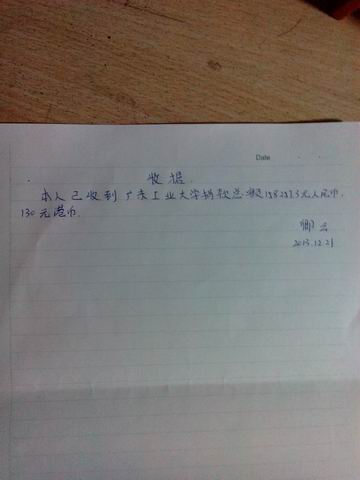 Date
收据
本人已收到广东工业大学捐款总额是158297.3元人民币,
130元港币.
2013.12.21